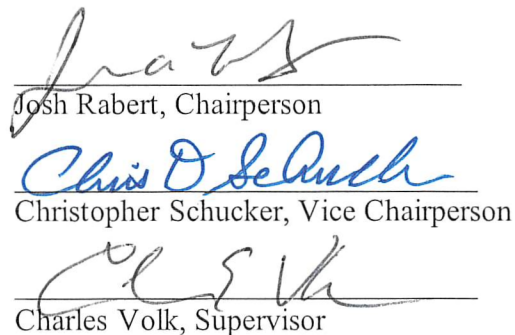 Josh Rabert, Chairperson
Chris D Schuck
Christopher Schucker, Vice Chairperson
Charles Volk, Supervisor